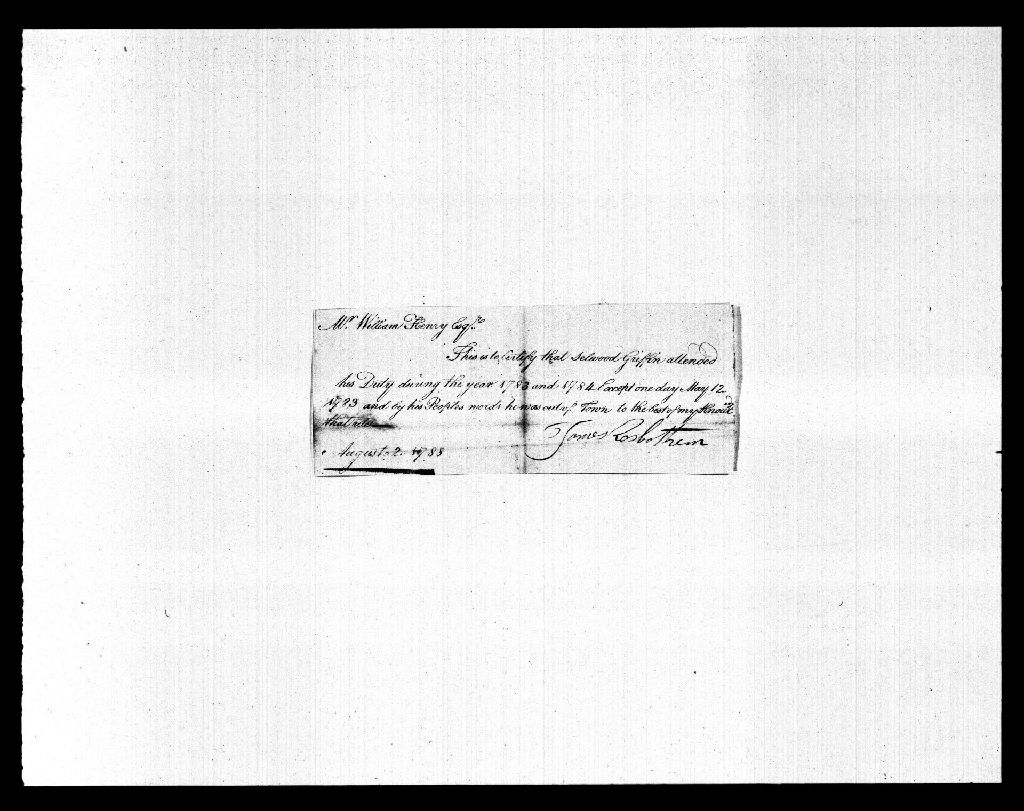 Mr. William Henry Esqr.
This is to Certify that Selwood Griffin attended
his Duty during the year 1783 and 1784 Except one day May 12
1783 and by his Peoples words he was out of Town to the best of my
that
James Losbothem
August. 2. 1788